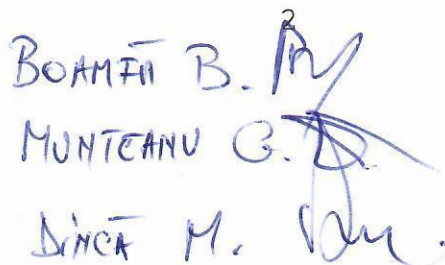 2
BOAMFĂ B.
MUNTEANU G. D.
DINCĂ M.